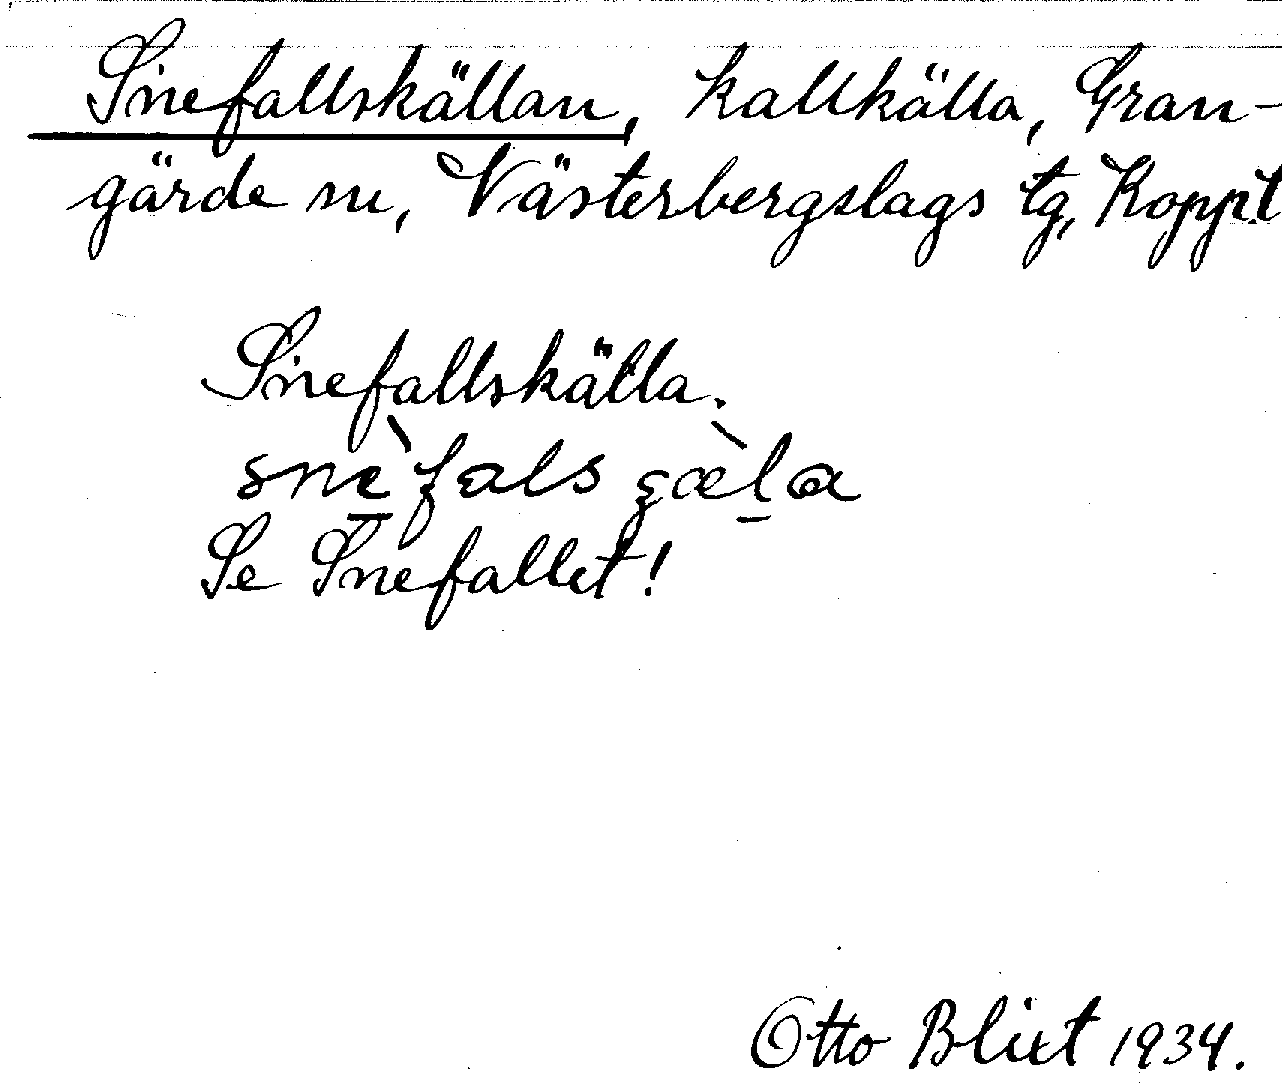 Snefallskällan, kallkälla, Gran-
gärde sn, Västerbergslags tg, Koppt
Snefallskälla.
snè̱fals çæ̀ḻa
Se Snefallet!
Otto Blixt 1934.